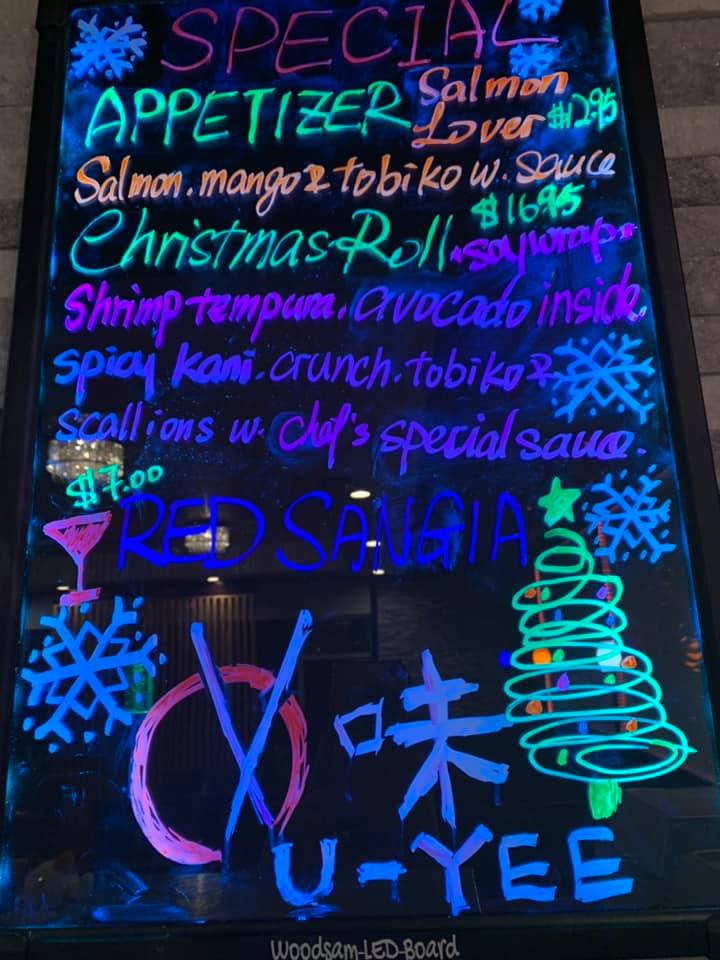 SPECIAL
APPETIZER Salmon Lover $12.95
Salmon, mango & tobiko w. sauce
Christmas Roll $16.95 soy wrap
Shrimp tempura, avocado inside,
spicy kani, crunch, tobiko &
scallions w. chef's special sauce.
$7.00
RED SANGIA
味
YU-YEE
Woodsam-LED-Board